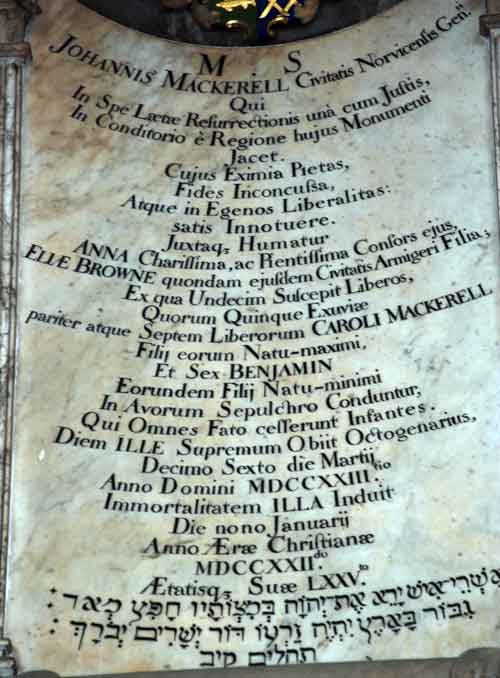 M S
JOHANNIS MACKERELL Civitatis Norvicensis Gen.
Qui
In Spe Lætæ Resurrectionis unà cum Justis,
In Conditorio è Regione hujus Monumenti
Jacet.
Cujus Eximia Pietas,
Fides Inconcussa,
Atque in Egenos Liberalitas:
satis Innotuere.
Juxtaq; Humatur
ANNA Charissima, ac Pientissima Consors ejus,
ELLÆ BROWNE quondam ejusdem Civitatis Armigeri Filia;
Ex qua Undecim Suscepit Liberos,
Quorum Quinque Exuviæ
pariter atque Septem Liberorum CAROLI MACKERELL
Filij eorum Natu-maximi,
Et Sex BENJAMIN
Eorundem Filij Natu-minimi
In Avorum Sepulchro Conduntur,
Qui Omnes Fato cesserunt Infantes.
Diem ILLE Supremum Obiit Octogenarius,
Decimo Sexto die Martij
Anno Domini MDCCXXIII.tio
Immortalitatem ILLA Induit
Die nono Januarij
Anno Æræ Christianæ
MDCCXXII.do
Ætatisq; Suæ LXXV.to
אשרי איש ירא את יהוה במצותיו חפץ מאד :
גבור בארץ יהיה זרעו דור ישרים יברך :
תהלים קיב